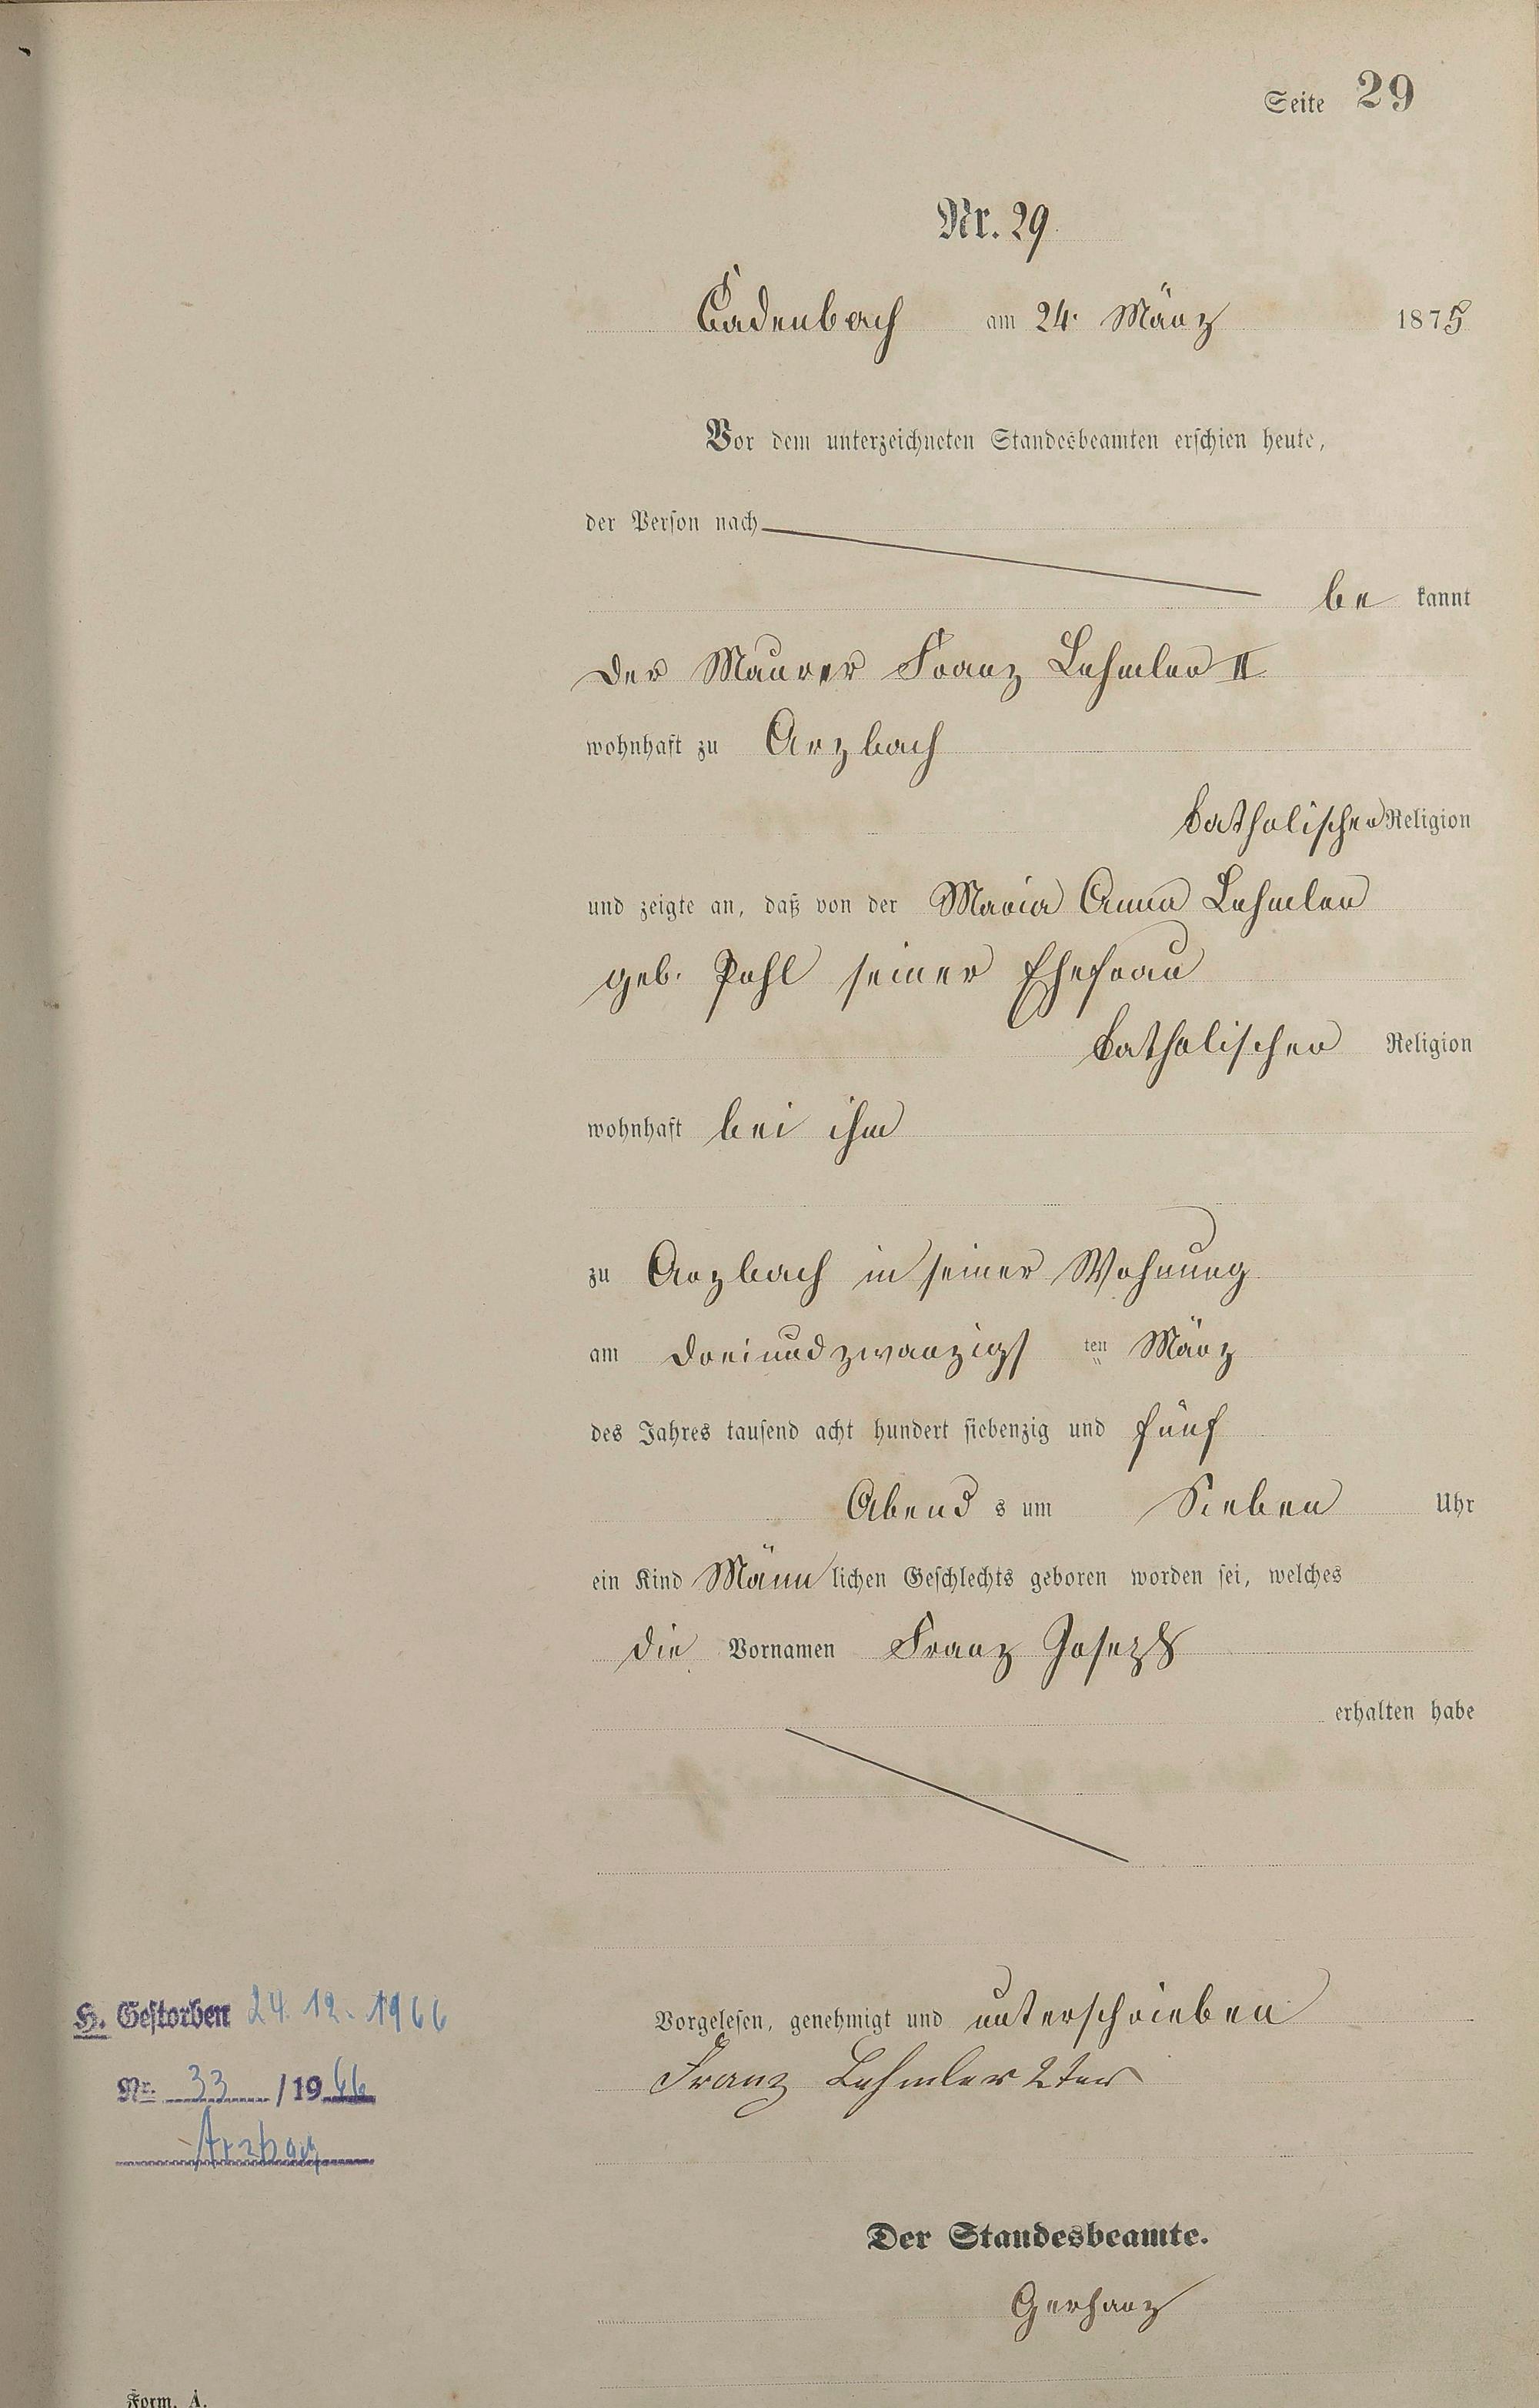 Seite 29
Nr. 29.
Cadenbach am 24. März 1875
Vor dem unterzeichneten Standesbeamten erschien heute,
der Person nach
be kannt
der Maurer Franz Lehmler II
wohnhaft zu Arzbach
katholischer Religion
und zeigte an, daß von der Maria Anna Lehmler
geb. Pohl seiner Ehefrau
katholischer Religion
wohnhaft bei ihm
zu Arzbach in seiner Wohnung
am dreiundzwanzigs ten März
des Jahres tausend acht hundert siebenzig und fünf
Abend s um Sieben Uhr
ein Kind Männ lichen Geschlechts geboren worden sei, welches
die Vornamen Franz Joseph
erhalten habe
Vorgelesen, genehmigt und unterschrieben
Franz Lehmler 2ter
H. Gestorben 24.12.1966
Nr. 33 /1966
Arzbach
Der Standesbeamte.
Gerharz
Form. A.